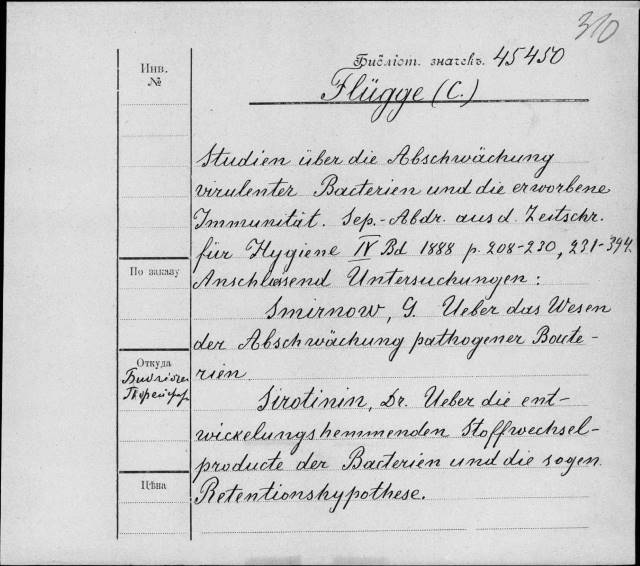 310
Библiот. значекъ. 45450
Инв.
№
Flügge (C.)
Studien über die Abschwächung
virulenter Bacterien und die erworbene
Immunität. Sep.-Abdr. aus d. Zeitschr.
für Hygiene IV Bd 1888 p. 208-230, 231-394.
По заказу
Anschliessend Untersuchungen:
Smirnow, G. Ueber das Wesen
der Abschwächung pathogener Bacte-
rien.
Откуда
Sirotinin, Dr. Ueber die ent-
wickelungshemmenden Stoffwechsel-
producte der Bacterien und die sogen.
Цѣна
Retentionshypothese.